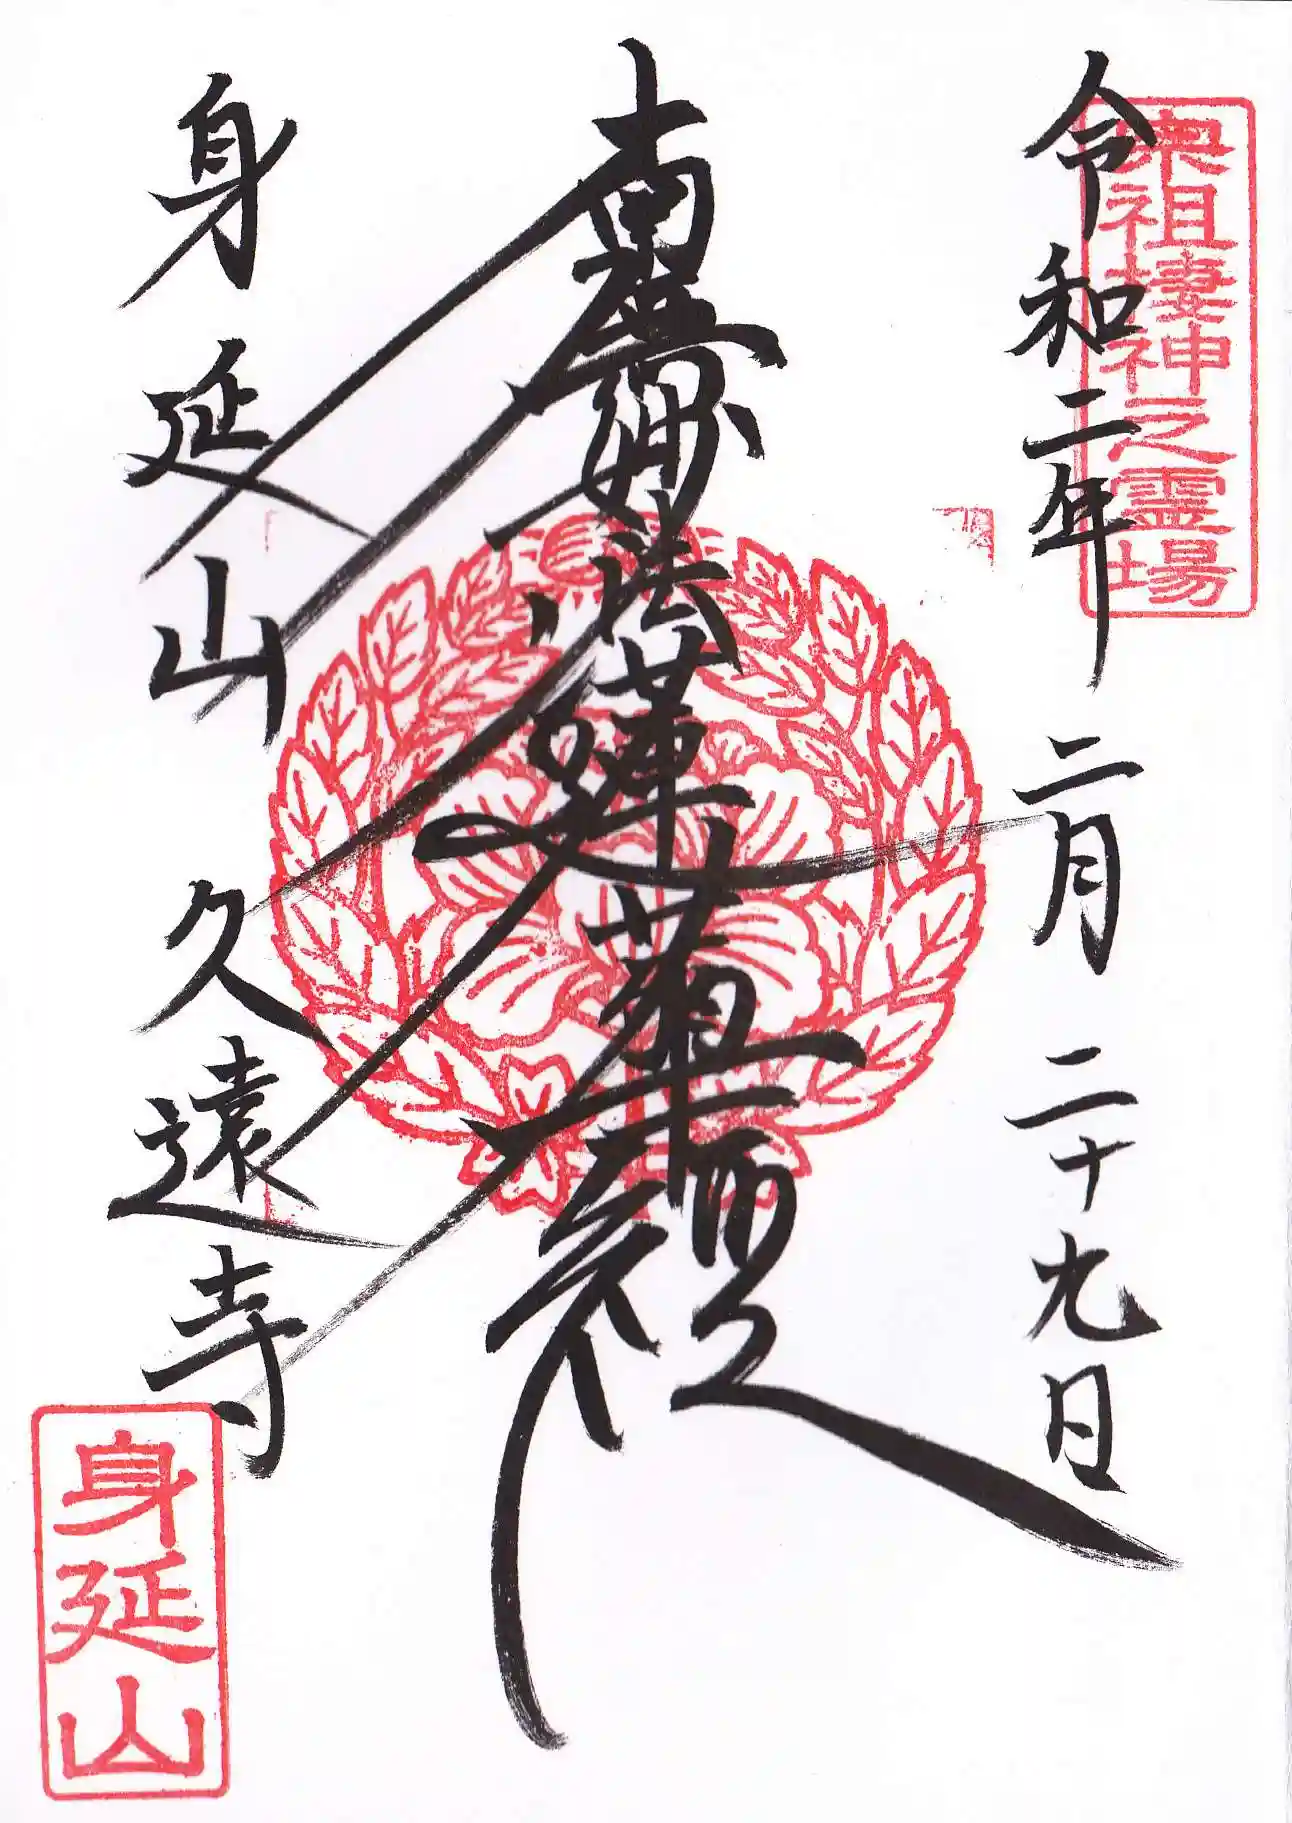 令和二年二月二十九日
宗祖棲神之霊場
南無妙法蓮華経
身延山久遠寺
身延山